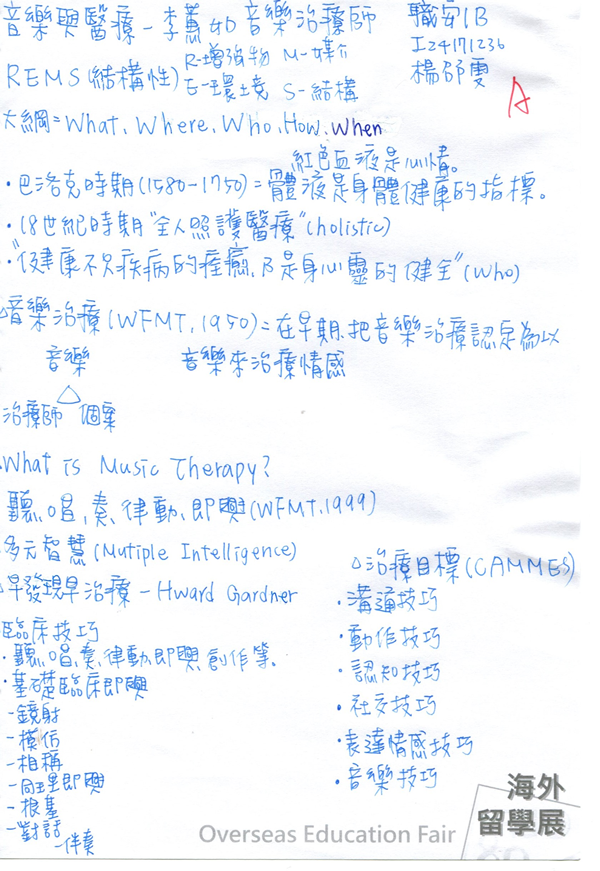 音樂與醫療-李蕙如音樂治療師
職安1B
I24171236
楊邵雯
A
R-增強物 M-媒介
REMS(結構性)
E-環境 S-結構
大綱=What、Where、Who、How、When
紅色血液是心情。
·巴洛克時期(1580-1750)=體液是身體健康的指標。
·18世紀時期"全人照護醫療"(holistic)
·"健康不只疾病的痊癒,乃是身心靈的健全"(Who)
音樂治療(WFMT,1950)=在早期、把音樂治療認定為以
音樂來治療情感
音樂
△
治療師 個案
What is Music Therapy?
聽、唱、奏、律動、即興(WFMT,1999)
多元智慧(Mutiple Intelligence)
早發現早治療-Hward Gardner
臨床技巧
·聽、唱、奏、律動、即興、創作等.
·基礎臨床即興
-鏡射
-模仿
-相稱
-同理即興
-根基
-對話
-伴奏
△治療目標(CAMMES)
·溝通技巧
·動作技巧
·認知技巧
·社交技巧
·表達情感技巧
·音樂技巧
海外
留學展
Overseas Education Fair